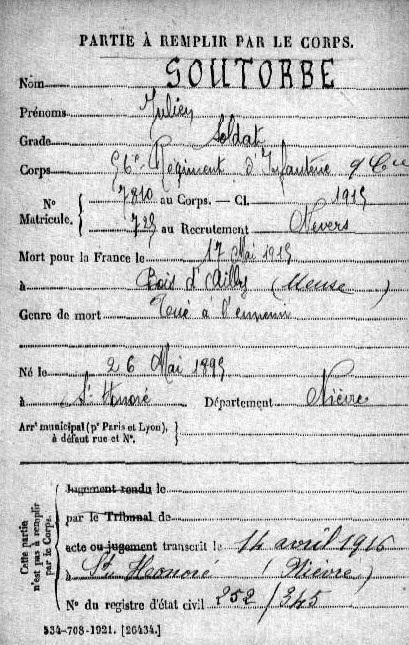 PARTIE À REMPLIR PAR LE CORPS.
Nom SOUTORBE
Prénoms Julien
Grade Soldat
Corps 56e Régiment d'Infanterie 9e Cie
N° Matricule. { 7810 au Corps. — Cl. 1915
725 au Recrutement Nevers
Mort pour la France le 17 Mai 1915
à Bois d'Ailly (Meuse)
Genre de mort Tué à l'ennemi
Né le 26 Mai 1895
à St Honoré Département Nièvre
Arrt municipal (pr Paris et Lyon), à défaut rue et N°. }
Cette partie n'est pas à remplir par le Corps.
Jugement rendu le
par le Tribunal de
acte ou jugement transcrit le 14 avril 1916
à St Honoré (Nièvre)
N° du registre d'état civil 252/345
534-708-1921. [26434.]